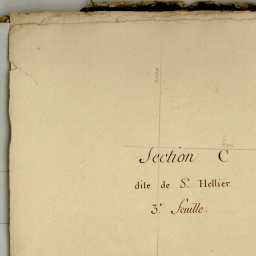 Section C
dite de St. Hellier
3e. Feuille.